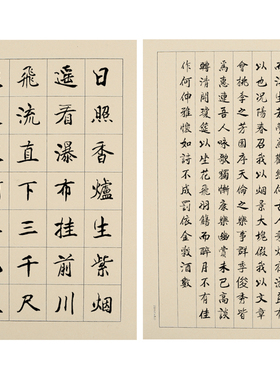 日照香爐生紫烟
遥看瀑布挂前川
飛流直下三千尺
以也况陽春召我以烟景大塊假我以文章
會桃李之芳園序天倫之樂事群季俊秀皆
為惠連吾人咏歌獨慚康樂幽賞未已高談
轉清開瓊筵以坐花飛羽觴而醉月不有佳
作何伸雅懷如詩不成罰依金酒數